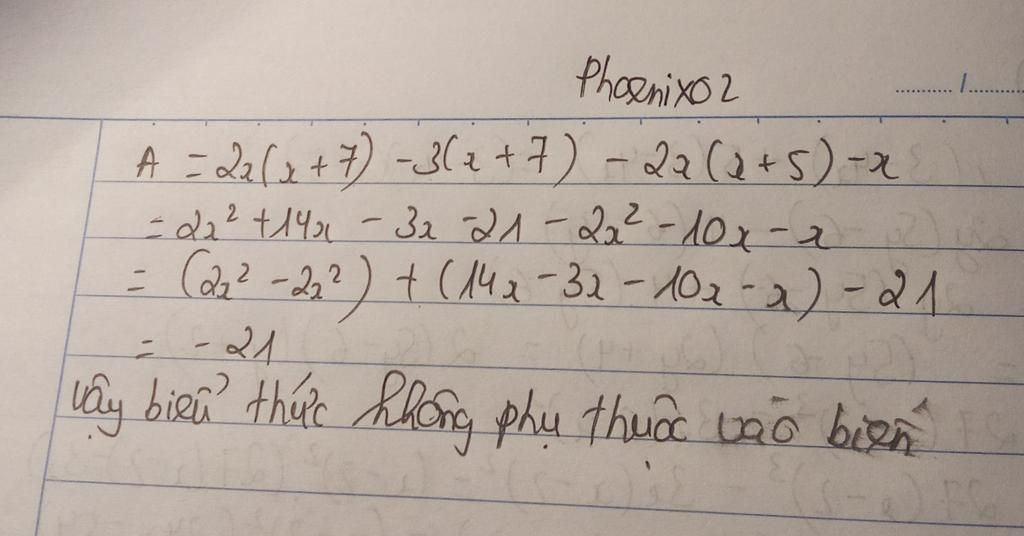 Phoenix02
A = 2x(x+7) - 3(x+7) - 2x(x+5) - x
= 2x² + 14x - 3x - 21 - 2x² - 10x - x
= (2x² - 2x²) + (14x - 3x - 10x - x) - 21
= - 21
Vậy biểu thức không phụ thuộc vào biến